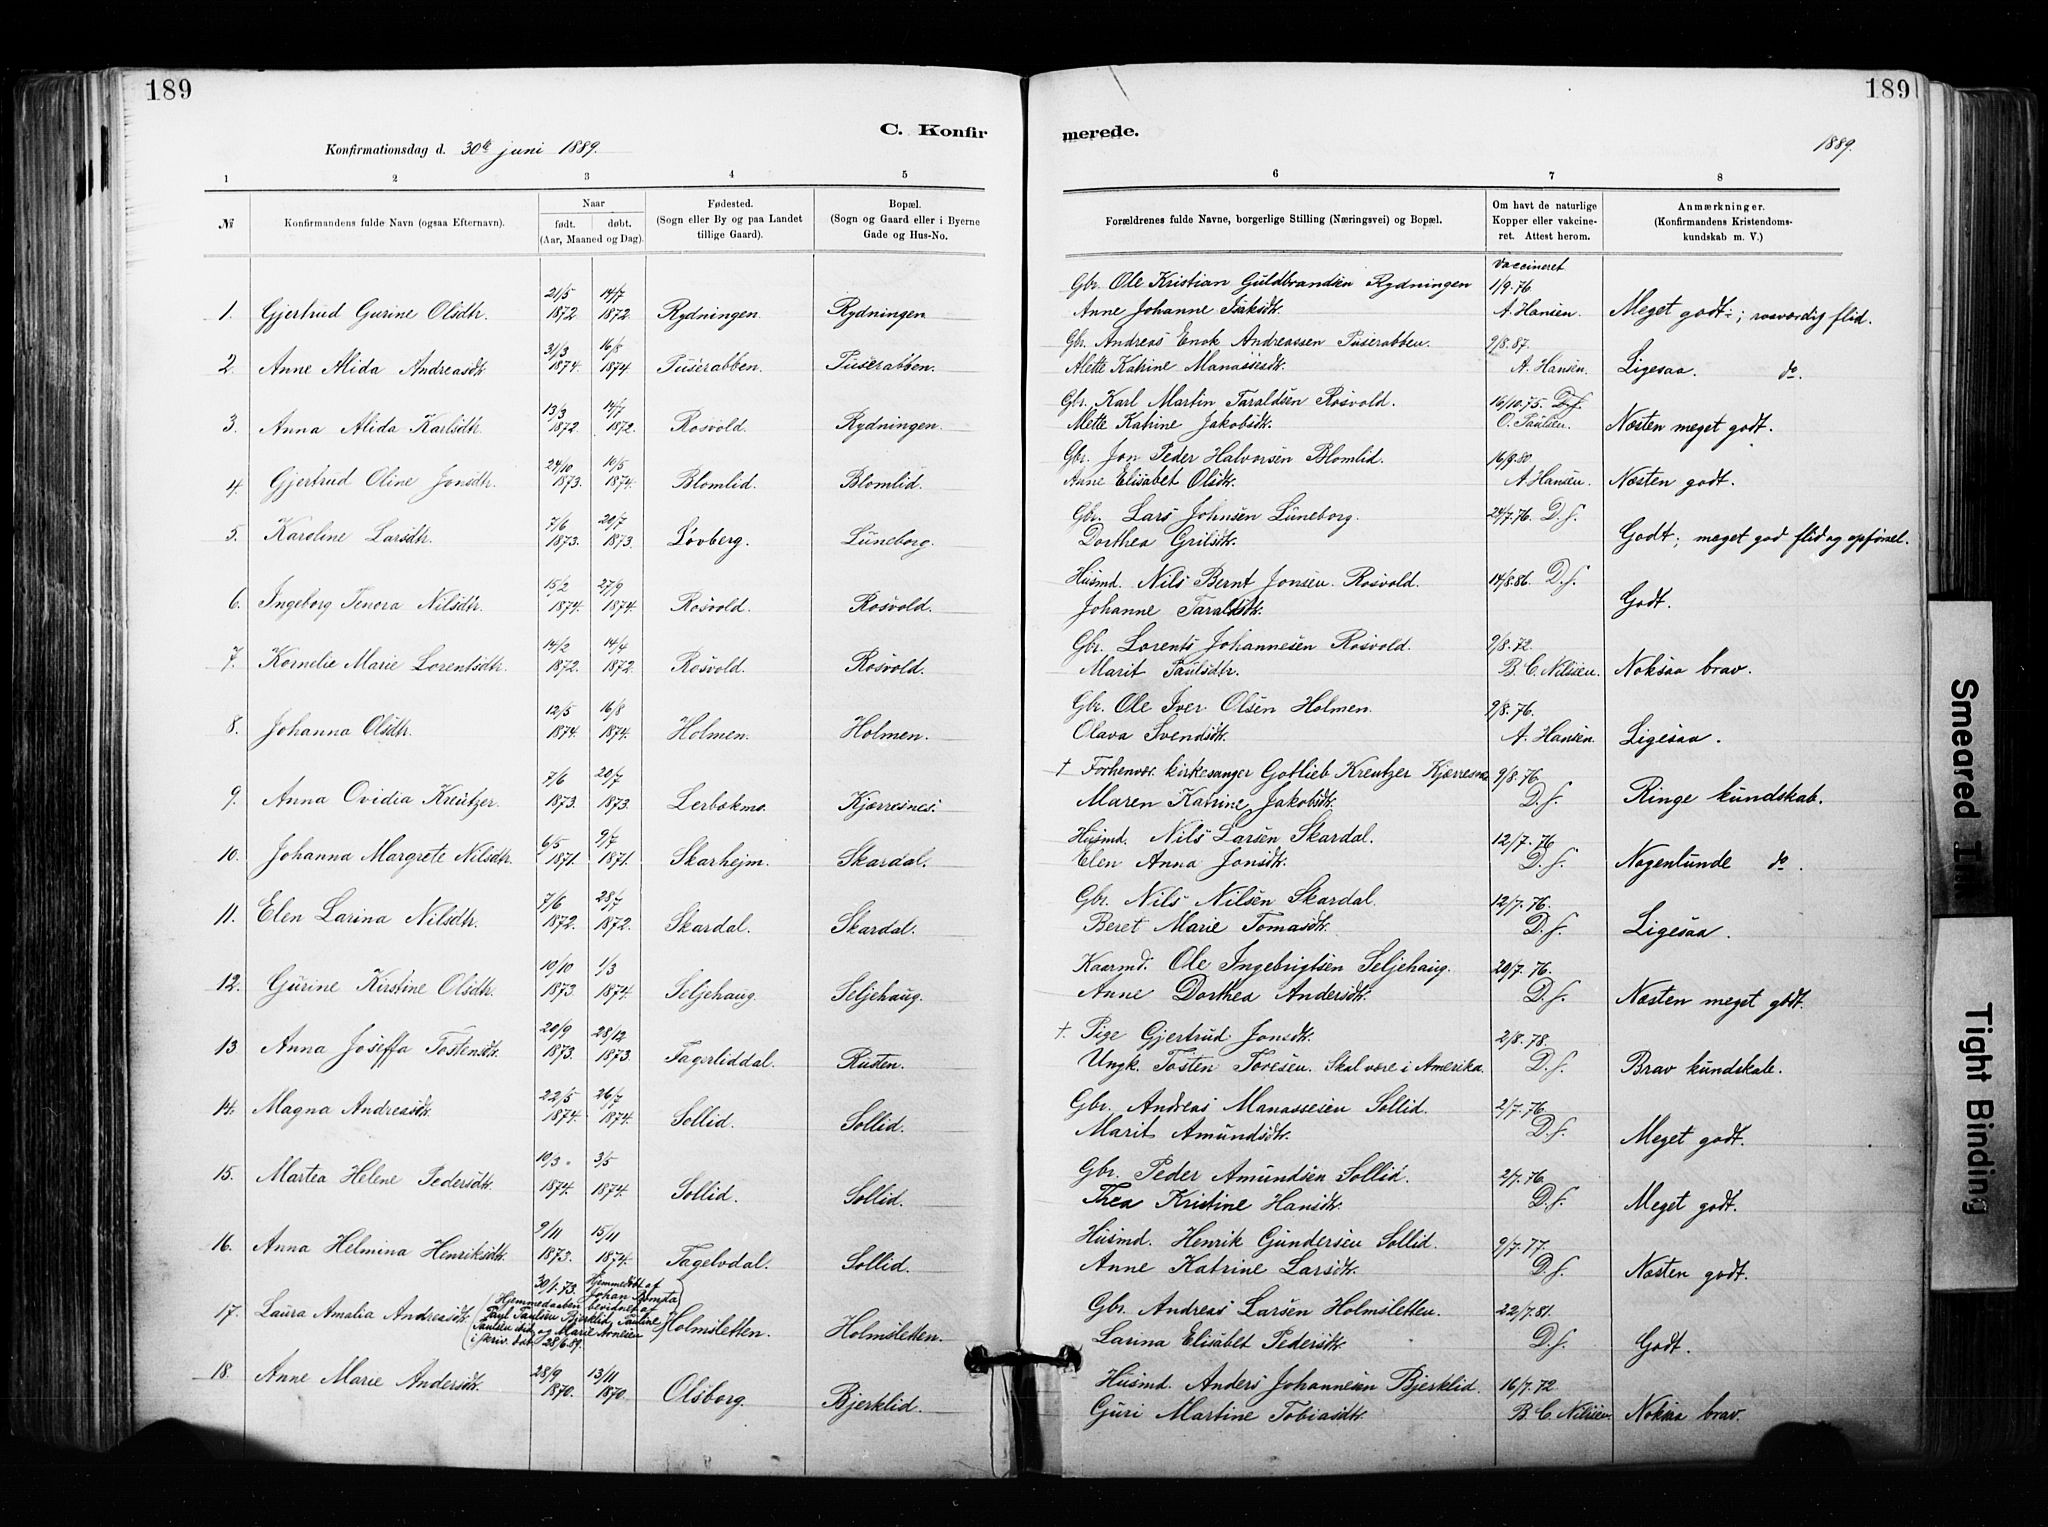 189
189
C. Konfir
merede.
Konfirmationsdag d. 30te juni 1889.
1889.
1 2 3 4 5 6 7 8
№ Konfirmandens fulde Navn (ogsaa Efternavn). Naar født. døbt. (Aar, Maaned og Dag). Fødested. (Sogn eller By og paa Landet tillige Gaard). Bopæl. (Sogn og Gaard eller i Byerne Gade og Hus-No. Forældrenes fulde Navne, borgerlige Stilling (Næringsvei) og Bopæl. Om havt de naturlige Kopper eller vakcineret. Attest herom. Anmærkninger. (Konfirmandens Kristendomskundskab m. V.)
vaccineret
21/5 14/7 Gbr. Ole Kristian Guldbrandsen Rydningen 1/9.76
1. Gjertrud Gurine Olsdtr. 1872 1872. Rydningen Rydningen Anne Johanne Isaksdtr. A. Hansen. Meget godt; rosværdig flid.
31/3 16/8 Gbr. Andreas Enok Andreassen Tuserabben. 9/8.87.
2. Anne Alida Andreasdtr 1874. 1874 Tuserabben. Tuserabben. Alette Katrine Manassesdtr. A. Hansen. Ligesaa. do.
13/3 14/7 Gbr. Karl Martin Taraldsen Rosvold. 16/10.75. D.f.
3. Anna Alida Karlsdtr. 1872. 1872. Rosvold. Rydningen. Mette Katrine Jakobsdtr. O. Paulsen. Næsten meget godt.
24/10 10/5 Gbr. Jon Peder Halvorsen Blomlid. 16/9.80
4. Gjertrud Oline Jonsdtr. 1873. 1874. Blomlid. Blomlid. Anne Elisabet Olsdtr. A. Hansen. Næsten godt.
7/6 20/7 Gbr. Lars Johnsen Luneborg. 24/7.76. D.f.
5. Karoline Larsdtr. 1873. 1873. Løvberg. Luneborg. Dorthea Grilsdtr. Godt; meget god flid og opførsel.
15/2 27/9 Husmd. Nils Bernt Jonsen Rosvold. 14/8.86. D.f.
6. Ingeborg Tenora Nilsdtr. 1874. 1874. Rosvold. Rosvold. Johanne Taraldsdtr. Godt.
14/2 14/4 Gbr. Lorents Johannesen Rosvold. 9/8.72.
7. Kornelie Marie Lorentsdtr. 1872 1872. Rosvold. Rosvold. Marit Paulsdtr. B. C. Nilsen. Noksaa brav.
12/5 16/8 Gbr. Ole Iver Olsen Holmen. 9/8.76.
8. Johanna Olsdtr. 1874. 1874. Holmen. Holmen. Olava Svendsdtr. A. Hansen. Ligesaa.
7/6 20/7 † Forhenvær. kirkesanger Gotlieb Kreutzer Kjærresnes 9/8.76.
9. Anna Ovidia Kreutzer. 1873. 1873. Lerbækmo Kjærresnes. Maren Katrine Jakobsdtr. D.f. Ringe kundskab.
6/5 9/7 Husmd. Nils Larsen Skardal. 12/7.76
10. Johanna Margrete Nilsdtr. 1871. 1871. Skarhejm. Skardal. Elen Anna Jonsdtr. D.f. Nogenlunde do.
7/6 28/7 Gbr. Nils Nilsen Skardal. 12/7.76.
11. Elen Larina Nilsdtr. 1872. 1872. Skardal. Skardal. Beret Marie Tomasdtr. D.f. Ligesaa.
10/10 1/3 Kaarmd. Ole Ingebrigtsen Seljehaug. 20/7.76.
12. Gurine Kirstine Olsdtr. 1873. 1874. Seljehaug. Seljehaug. Anne Dorthea Andersdtr. D.f. Næsten meget godt.
20/9 28/12 † Pige Gjertrud Jonsdtr. 2/8.78.
13. Anna Joseffa Tostensdtr. 1873. 1873. Fagerliddal. Rusten. Ungk. Tosten Toresen. Skal være i Amerika. D.f. Brav kundskab.
22/5 26/7 Gbr. Andreas Manassesen Sollid. 2/7.76.
14. Magna Andreasdtr. 1874. 1874. Sollid. Sollid. Marit Amundsdtr. D.f. Meget godt.
10/3 3/5 Gbr. Peder Amundsen Sollid. 2/7.76.
15. Martea Helene Pedersdtr. 1874. 1874. Sollid. Sollid. Thea Kristine Hansdtr. D.f. Meget godt.
9/11 15/11 Husmd. Henrik Gundersen Sollid. 9/7.77.
16. Anna Helmina Henriksdtr. 1873. 1874. Tagelvdal. Sollid. Anne Katrine Larsdtr. D.f. Næsten godt.
30/1.73. Hjemmedøbt af Johan Bomsta Gbr. Andreas Larsen Holmsletten. 22/7.81
17. Laura Amalia Andreasdtr. (Hjemmedaaben bevidnet af Paul Paulsen Bjerklid, Pauline Paulsen ibid. og Marie Arnesen i skriv. dat. 28/6.89.) Holmsletten. Holmsletten. Larina Elisabet Pedersdtr. D.f. Godt.
28/9 13/11 Husmd. Anders Johannesen Bjerklid. 16/7.72
18. Anne Marie Andersdtr. 1870. 1870. Olsborg. Bjerklid. Guri Martine Tobiasdtr. B. C. Nilsen. Noksaa brav.
Smeared Ink
Tight Binding